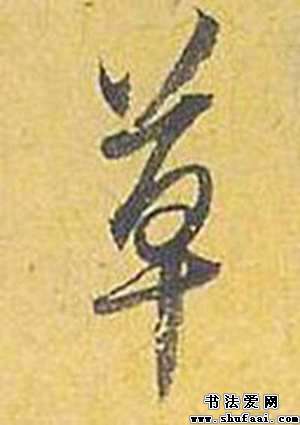 草
书法爱网
www.shufaai.com